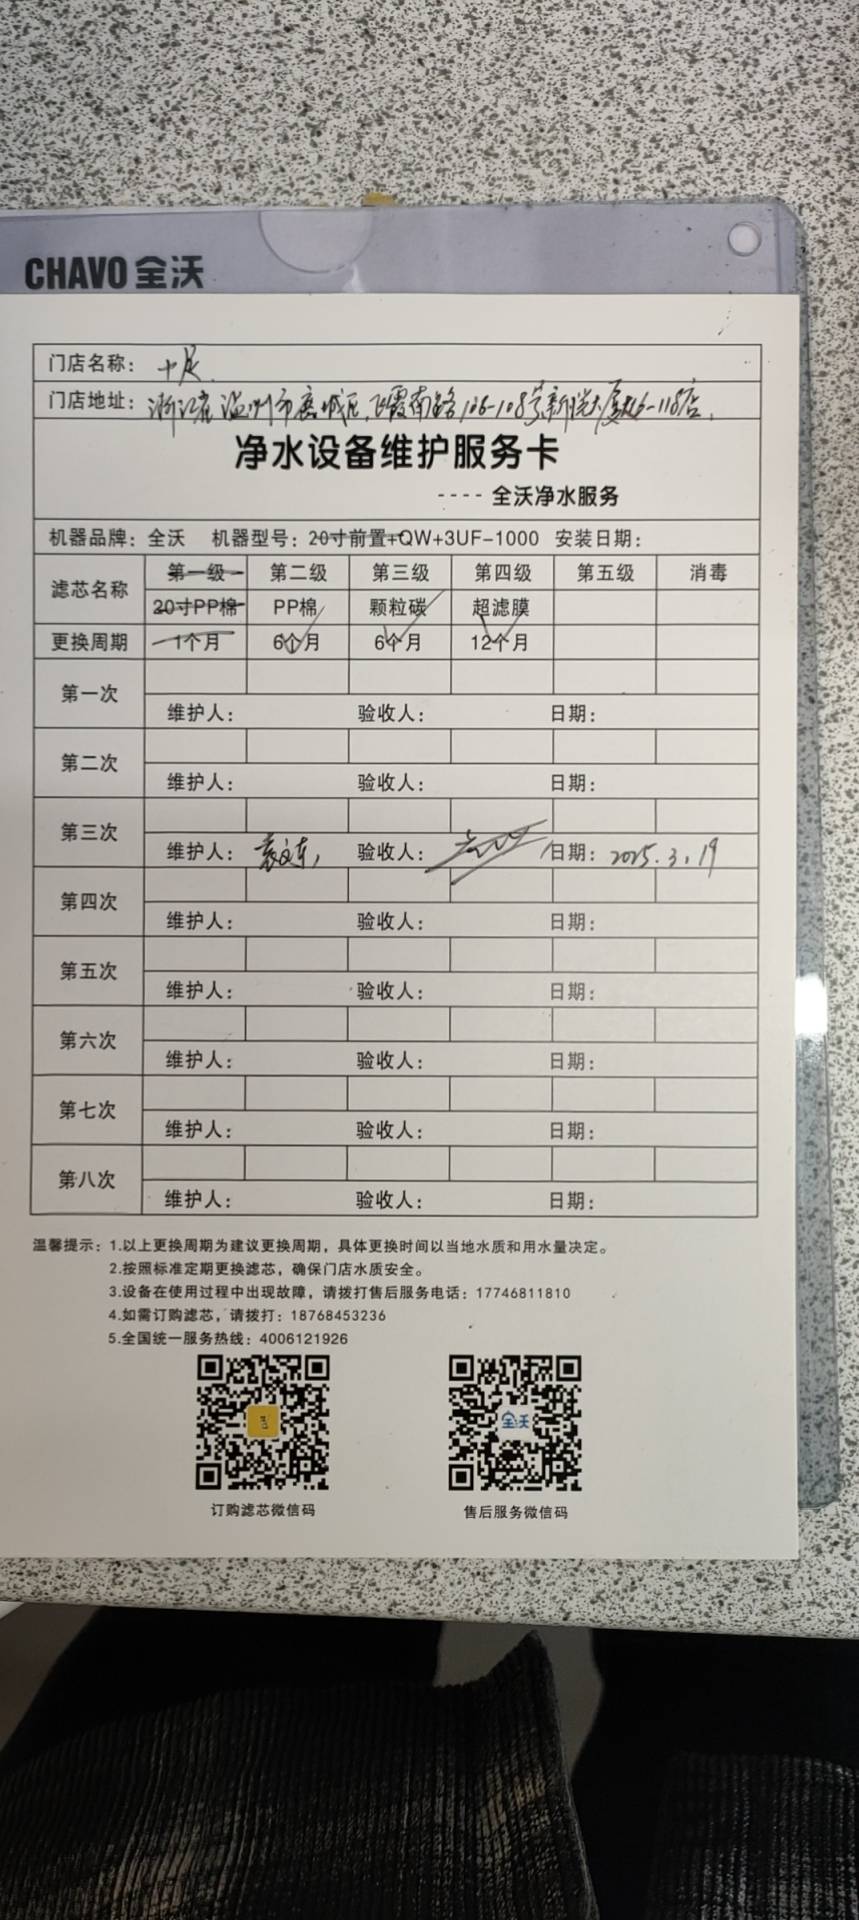 CHAVO 全沃
门店名称：十足
门店地址：浙江省温州市鹿城区飞霞南路106-108号新悦大厦 106-118店
净水设备维护服务卡
---- 全沃净水服务
机器品牌：全沃 机器型号：20寸前置+QW+3UF-1000 安装日期：
滤芯名称 第一级 第二级 第三级 第四级 第五级 消毒
20寸PP棉 PP棉 颗粒碳 超滤膜
更换周期 1个月 6个月 6个月 12个月
第一次
维护人： 验收人： 日期：
第二次
维护人： 验收人： 日期：
第三次
维护人：袁文东 验收人： 日期：2025.3.19
第四次
维护人： 验收人： 日期：
第五次
维护人： 验收人： 日期：
第六次
维护人： 验收人： 日期：
第七次
维护人： 验收人： 日期：
第八次
维护人： 验收人： 日期：
温馨提示：1.以上更换周期为建议更换周期，具体更换时间以当地水质和用水量决定。
2.按照标准定期更换滤芯，确保门店水质安全。
3.设备在使用过程中出现故障，请拨打售后服务电话：17746811810
4.如需订购滤芯，请拨打：18768453236
5.全国统一服务热线：4006121926
全沃
订购滤芯微信码 售后服务微信码